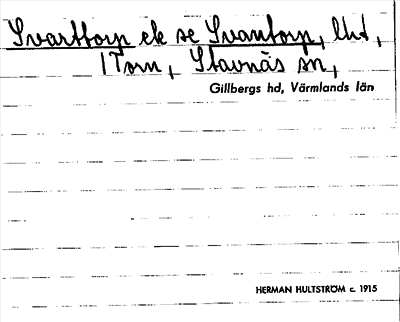 Svarttorp ek se Svantorp, lht,
1 Torn, Stavnäs sn,
Gillbergs hd, Värmlands län
HERMAN HULTSTRÖM c. 1915